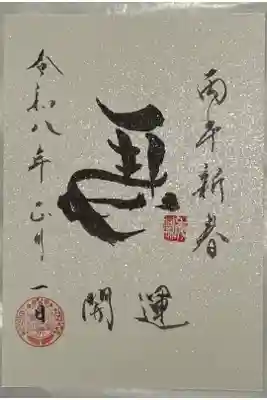 丙午新春
馬
開運
令和八年正月
一日